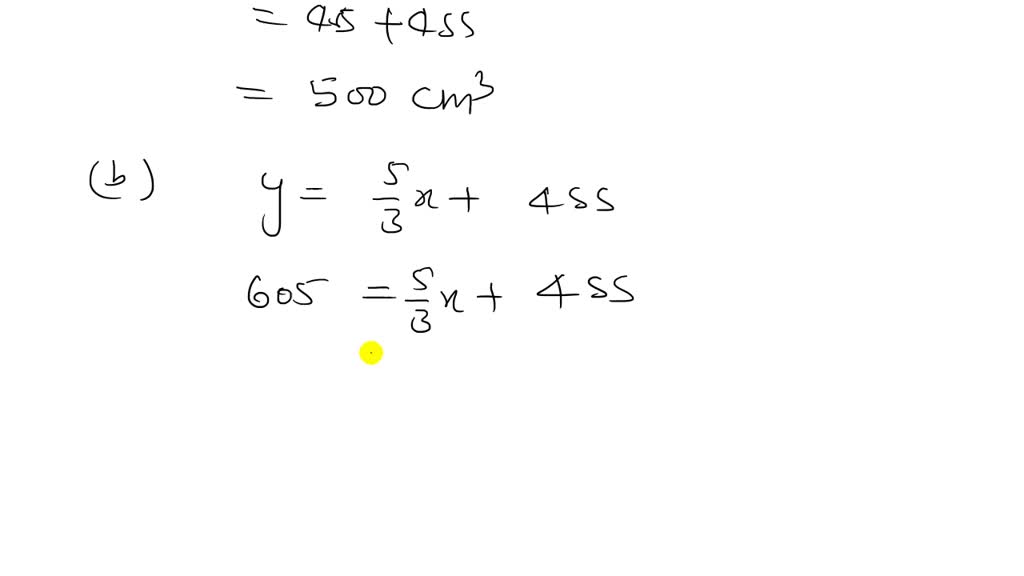 = 45 + 455
= 500 cm³
(b) y = 5/3 x + 455
605 = 5/3 x + 455